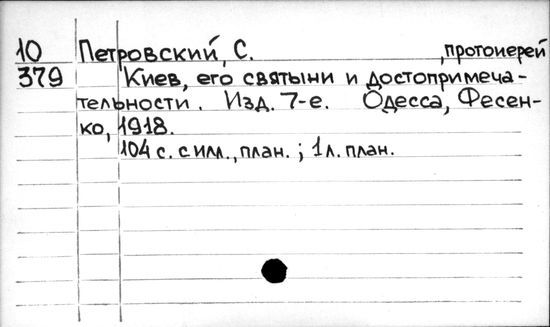 10 Петровский, С. , протоиерей
379 Киев, его святыни и достопримеча-
тельности. Изд. 7-е. Одесса, Фесен-
ко, 1918.
104 с. с илл., план. ; 1 л. план.